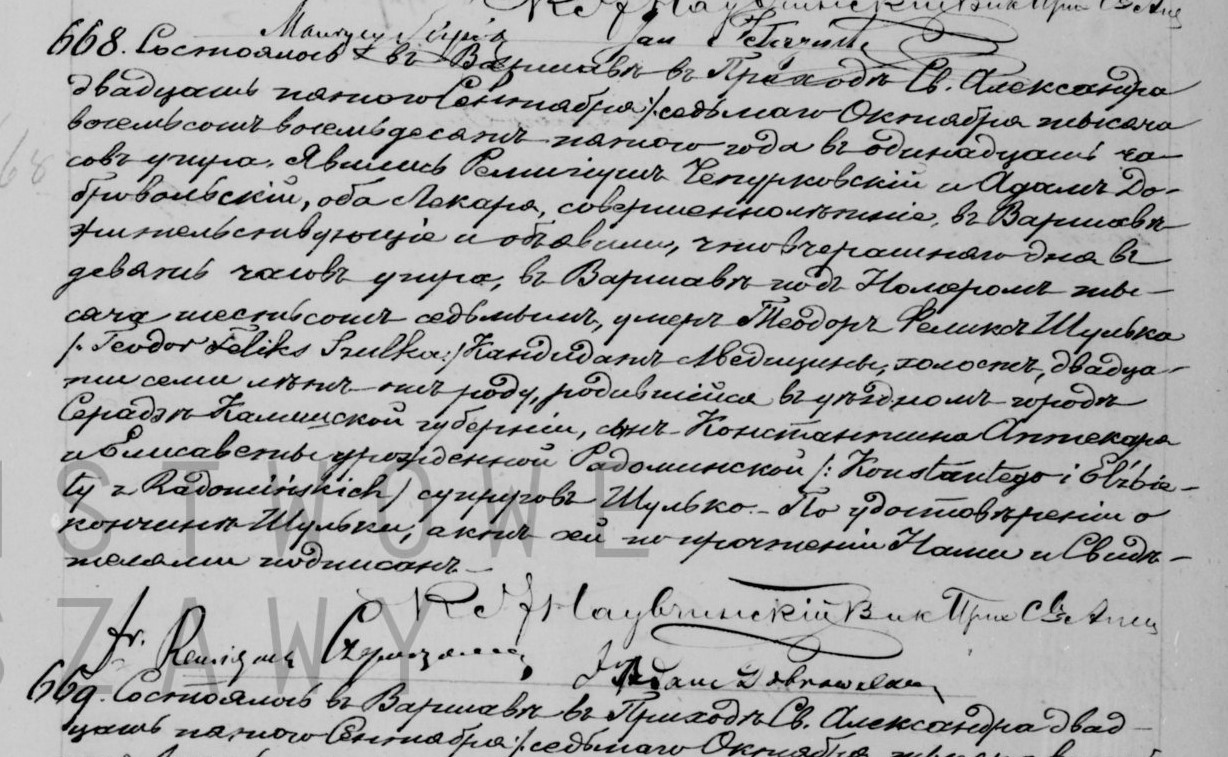 Maurycy Jan
668. Состоялось въ Варшавѣ въ Приходѣ Св. Александра
двадцать пятого Сентября /: седьмаго Октября тысяча
восемьсотъ восемьдесятъ пятого года въ одинадцать ча-
совъ утра. Явились Ремигіушъ Чепурковскій и Адамъ До-
бровольскій, оба Лекаря, совершеннолѣтніе, въ Варшавѣ
жительствующіе и объявили, что вчерашняго дня въ
девять часовъ утра, въ Варшавѣ подъ Номеромъ ты-
сяча шестьсотъ седьмымъ, умеръ Теодоръ Феликсъ Шулька
/: Teodor Feliks Szulka :/ Кандидатъ Медицины, холостъ, двадца-
ти семи лѣтъ отъ роду, родившійся въ уѣздномъ городѣ
Серадзѣ Калишской губерніи, сынъ Константина Аптекаря
и Елисаветы урожденной Радоминской /: Konstantego i Elżbie-
ty z Radomińskich / супруговъ Шулько. - По удостовѣреніи о
кончинѣ Шульки, актъ сей по прочтеніи Нами и Свидѣ-
телями подписанъ. -
Вик. Прих. Св. Алек
fr. Remigiusz
Adam Dobrowolski
669. Состоялось въ Варшавѣ въ Приходѣ Св. Александра двад-
цать пятого Сентября /: седьмаго Октября
STWOWE
SZAWY